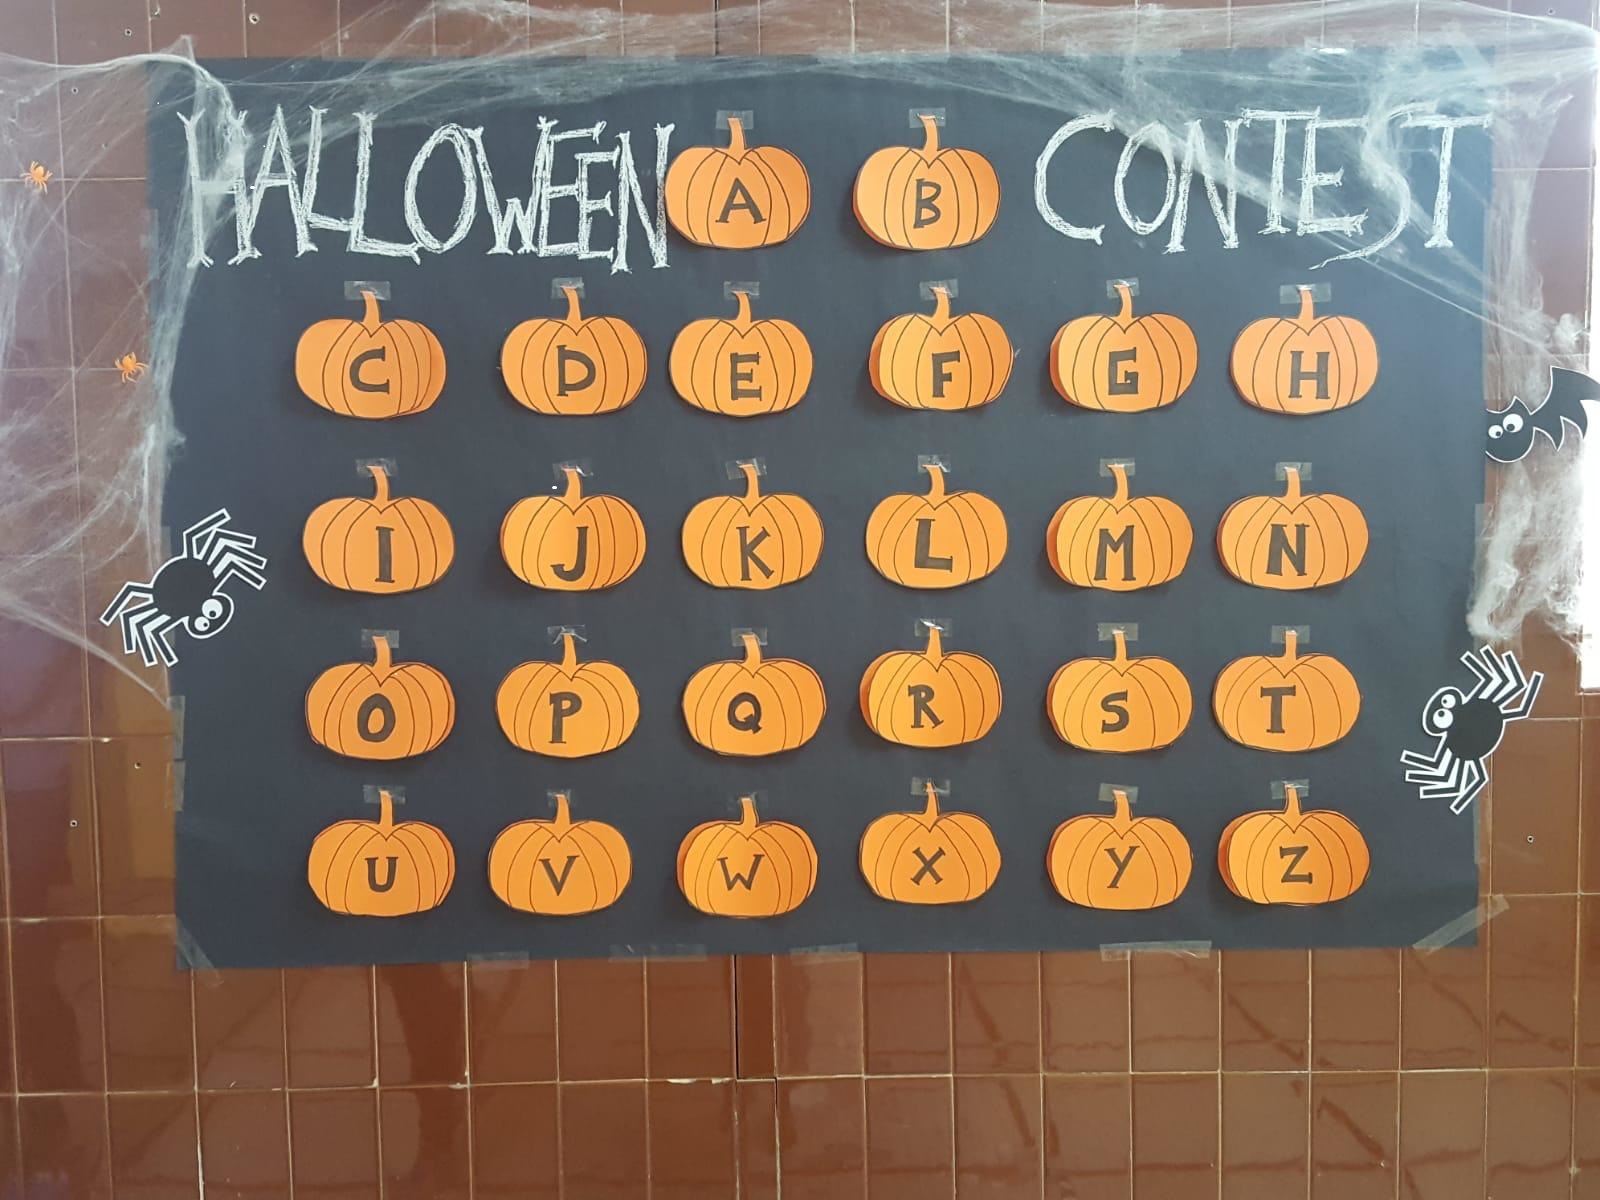 HALLOWEEN A B CONTEST
C D E F G H
I J K L M N
O P Q R S T
U V W X Y Z